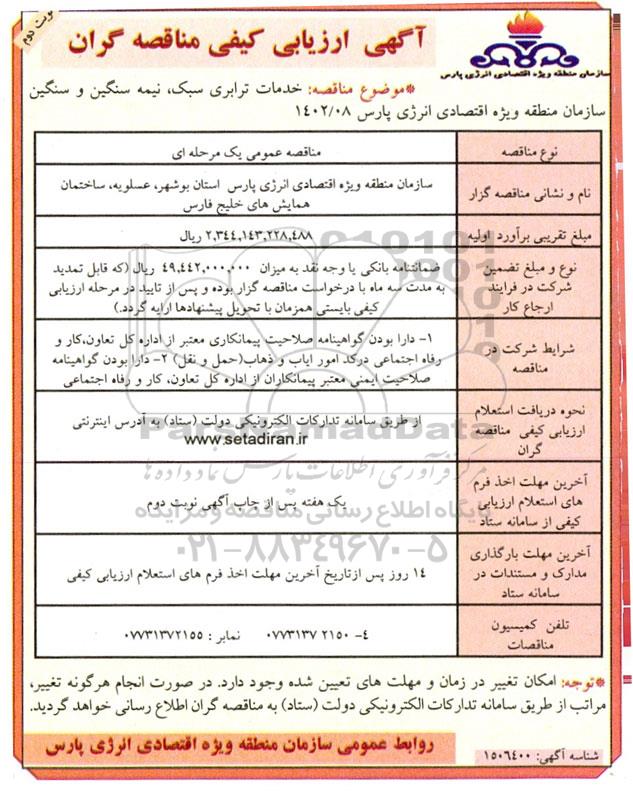 نوبت دوم
آگهی ارزیابی کیفی مناقصه گران
سازمان منطقه ویژه اقتصادی انرژی پارس
*موضوع مناقصه: خدمات ترابری سبک، نیمه سنگین و سنگین
سازمان منطقه ویژه اقتصادی انرژی پارس ۱۴۰۲/۰۸
نوع مناقصه
مناقصه عمومی یک مرحله ای
نام و نشانی مناقصه گزار
سازمان منطقه ویژه اقتصادی انرژی پارس استان بوشهر، عسلویه، ساختمان
همایش های خلیج فارس
مبلغ تقریبی برآورد اولیه
۲,۳۴۴,۱۴۳,۲۲۸,۴۸۸ ریال
نوع و مبلغ تضمین
شرکت در فرایند
ارجاع کار
ضمانتنامه بانکی یا وجه نقد به میزان ۴۹,۴۴۲,۰۰۰,۰۰۰ ریال (که قابل تمدید
به مدت سه ماه با درخواست مناقصه گزار بوده و پس از تایید در مرحله ارزیابی
کیفی بایستی همزمان با تحویل پیشنهادها ارایه گردد.)
شرایط شرکت در
مناقصه
۱- دارا بودن گواهینامه صلاحیت پیمانکاری معتبر از اداره کل تعاون،کار و
رفاه اجتماعی درکد امور ایاب و ذهاب(حمل و نقل) ۲- دارا بودن گواهینامه
صلاحیت ایمنی معتبر پیمانکاران از اداره کل تعاون، کار و رفاه اجتماعی
نحوه دریافت استعلام
ارزیابی کیفی مناقصه
گران
از طریق سامانه تدارکات الکترونیکی دولت (ستاد) به آدرس اینترنتی
www.setadiran.ir
ParsNamadData
مرکز فرآوری اطلاعات پارس نماد داده ها
آخرین مهلت اخذ فرم
های استعلام ارزیابی
کیفی از سامانه ستاد
یک هفته پس از چاپ آگهی نوبت دوم
پایگاه اطلاع رسانی مناقصه و مزایده
۰۲۱-۸۸۳۴۹۶۷۰-۵
آخرین مهلت بارگذاری
مدارک و مستندات در
سامانه ستاد
۱۴ روز پس ازتاریخ آخرین مهلت اخذ فرم های استعلام ارزیابی کیفی
تلفن کمیسیون
مناقصات
۴- ۰۷۷۳۱۳۷ ۲۱۵۰ نمابر : ۰۷۷۳۱۳۷۲۱۵۵
*توجه: امکان تغییر در زمان و مهلت های تعیین شده وجود دارد. در صورت انجام هرگونه تغییر،
مراتب از طریق سامانه تدارکات الکترونیکی دولت (ستاد) به مناقصه گران اطلاع رسانی خواهد گردید.
روابط عمومی سازمان منطقه ویژه اقتصادی انرژی پارس
شناسه آگهی: ۱۵۰۶۴۰۰